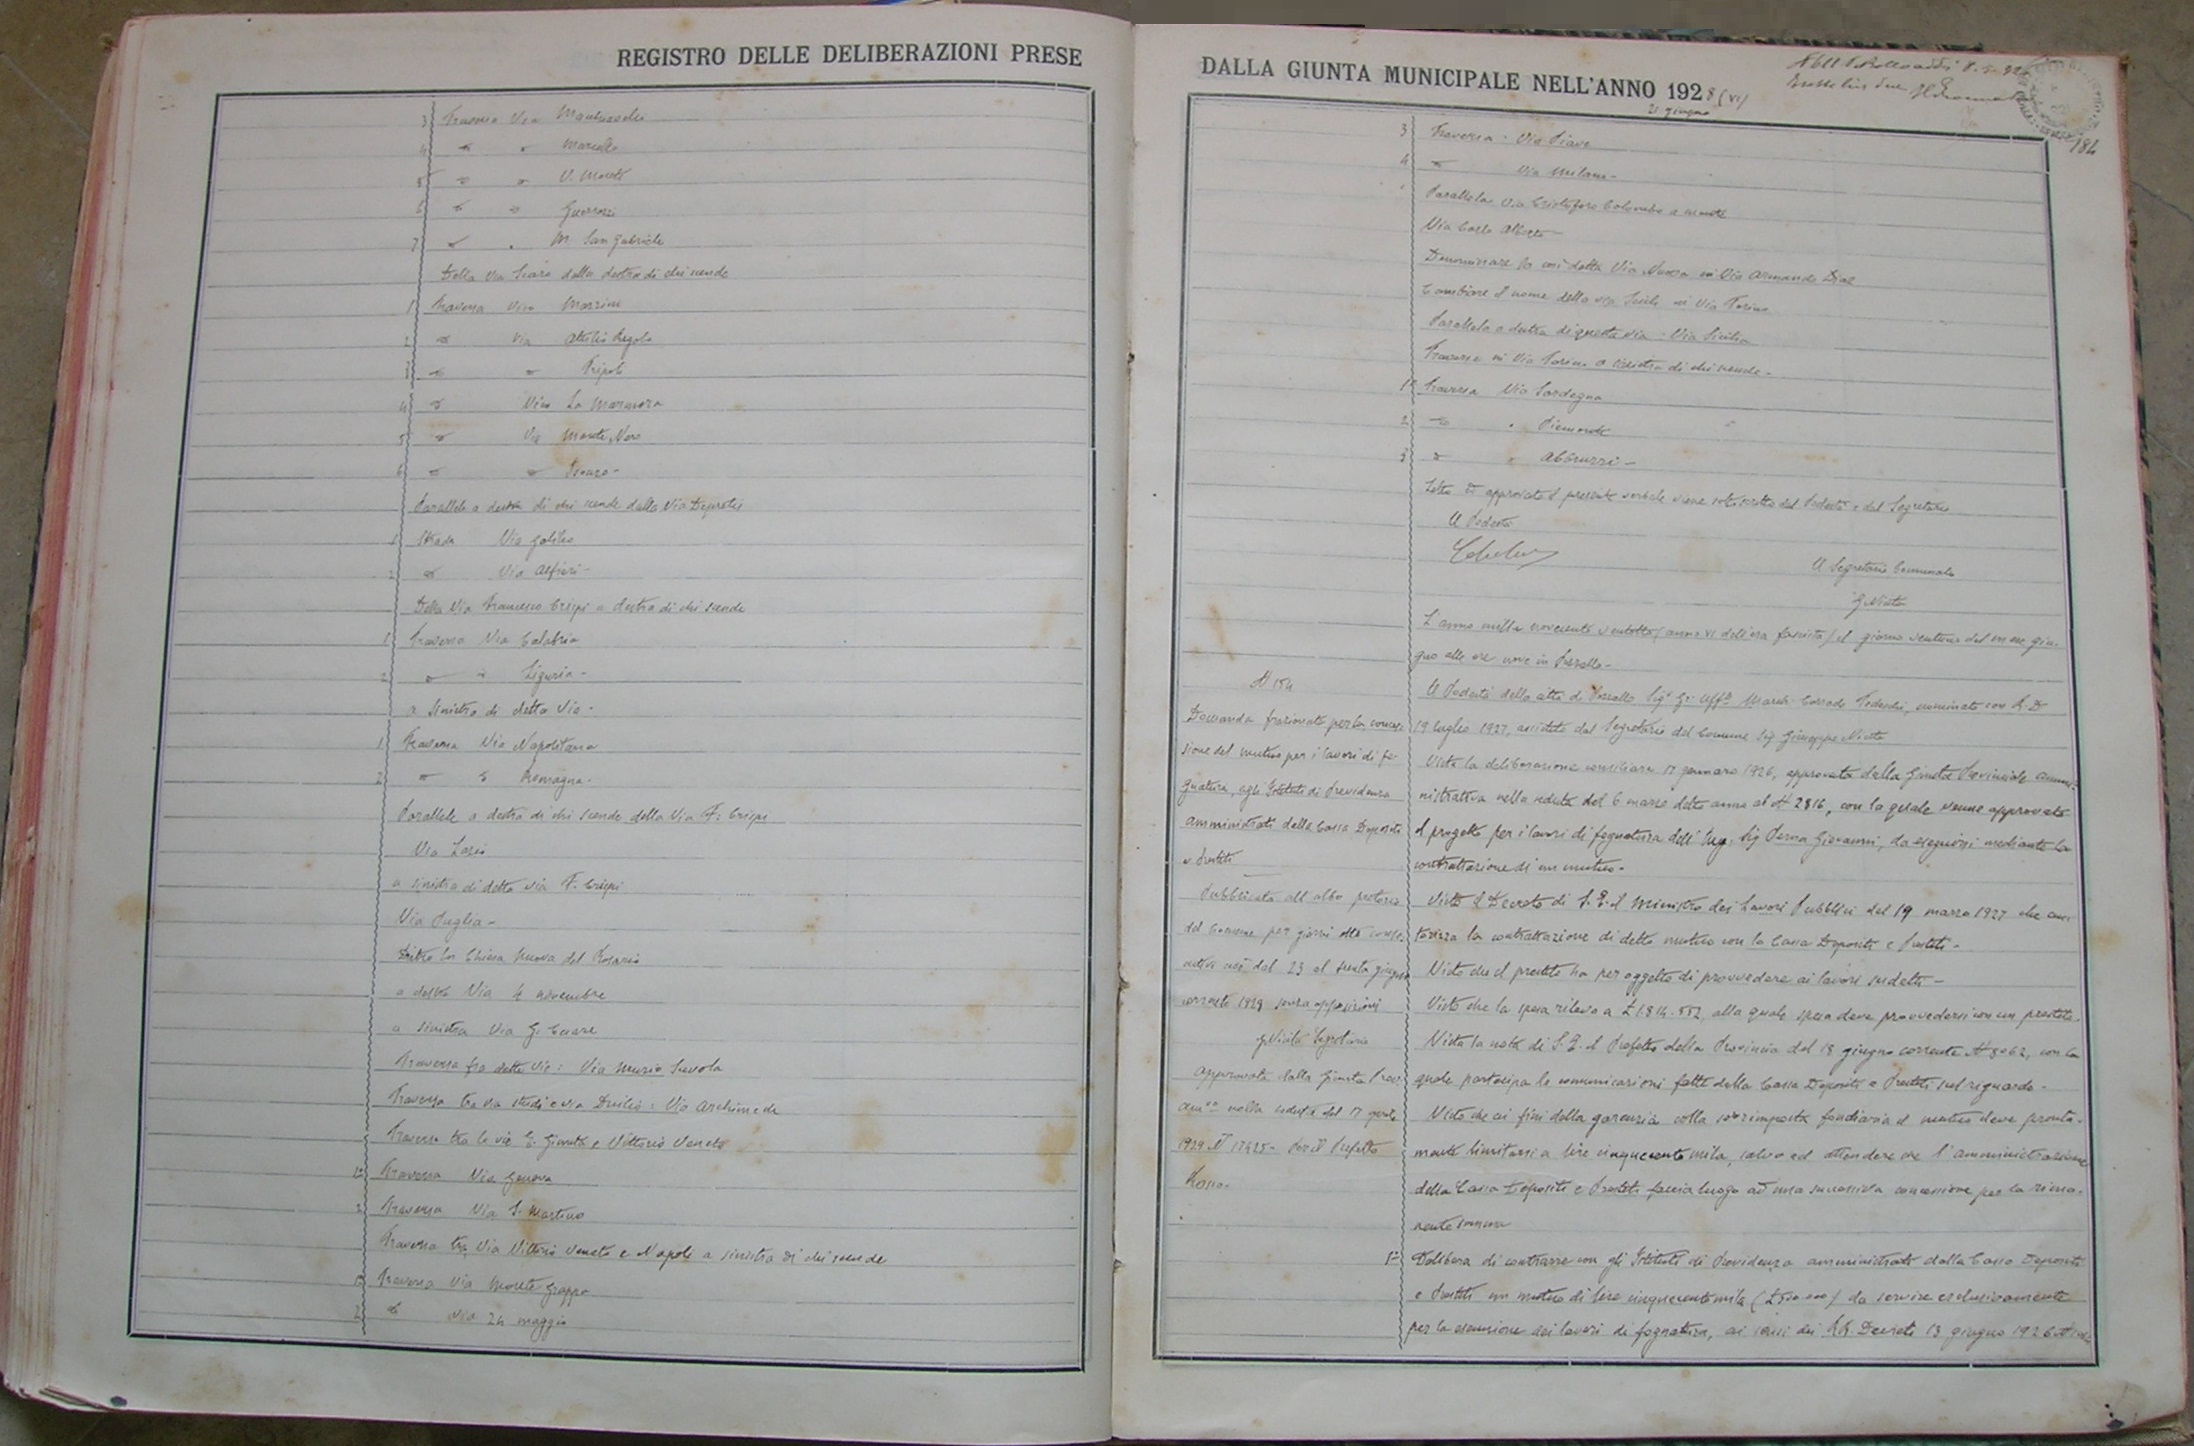 REGISTRO DELLE DELIBERAZIONI PRESE
3 Traversa Via
4 " " Marcello
5 " " V. Monti
6 " "
7 " " M. San Gabriele
Della Via dalla destra di chi scende
1 Traversa Vico Mazzini
2 " Via Attilio Regolo
3 " " Tripoli
4 " Vico La Marmora
5 " Via Monte Nero
6 " " Isonzo -
Parallele a destra di chi scende dalla Via Depretis
1 Strada Via Galileo
2 " Via Alfieri -
Della Via Francesco Crispi a destra di chi scende
1 Traversa Via Calabria
2 " " Liguria -
a sinistra di detta Via -
1 Traversa Via Napolitana
2 " " Romagna -
Parallele a destra di chi scende della Via F. Crispi
Via Lazio
a sinistra di detta via F. Crispi
Via Puglia -
Dietro la Chiesa Nuova del Rosario
a destra Via 4 novembre
a sinistra Via G. Cesare
Traversa fra dette vie: Via Muzio Scevola
Traversa tra via studi e via Duilio: Via Archimede
Traversa tra le vie e Vittorio Veneto
1ª Traversa Via Genova
2 Traversa Via S. Martino
Traversa tra Via Vittorio Veneto e Napoli a sinistra di chi scende
1ª Traversa Via Monte Grappa
2 " Via 24 maggio
DALLA GIUNTA MUNICIPALE NELL'ANNO 1928 (VI)
21 giugno
184
3 Traversa - Via Piave
4 " Via Milano -
Parallela Via Cristoforo Colombo a monte
Via Carlo Alberto -
Denominare la così detta Via Nuova in Via Armando Diaz
Cambiare il nome della via Sicilia in Via Torino
Parallela a destra di questa via - Via Sicilia
Traverse in Via Torino a sinistra di chi scende -
1ª Traversa Via Sardegna
2 " " Piemonte
3 " " Abbruzzi -
Letto ed approvato il presente verbale viene sottoscritto dal Podestà e dal Segretario
Il Podestà
Il Segretario Comunale
L'anno mille novecento ventotto (anno VI dell'era fascista) il giorno ventuno del mese giu-
gno alle ore nove in
Il Podestà della città di Sig. Gr. Uff. March. Corrado Tedeschi, nominato con R. D.
19 luglio 1927, assistito dal Segretario del Comune Sig Giuseppe
Vista la deliberazione consiliare 17 gennaro 1926, approvata dalla Giunta Provinciale Ammi-
nistrativa nella seduta del 6 marzo detto anno al N 2816, con la quale venne approvato
il progetto per i lavori di fognatura dell'Ing. Sig Perna Giovanni, da eseguirsi mediante la
contrattazione di un mutuo -
Visto il Decreto di S. E. il Ministro dei Lavori Pubblici del 19 marzo 1927 che au-
torizza la contrattazione di detto mutuo con la Cassa Depositi e Prestiti -
Visto che il prestito ha per oggetto di provvedere ai lavori sudetti -
Visto che la spesa rileva a £ 1.814.552, alla quale spesa deve provvedersi con un prestito
Vista la nota di S. E. il Prefetto della Provincia del 18 giugno corrente N 3062, con la
quale partecipa le comunicazioni fatte della Cassa Depositi e Prestiti sul riguardo -
Visto che ai fini della garenzia colla sovrimposta fondiaria il mutuo deve pronta-
mente limitarsi a lire cinquecentomila, salvo ad attendere che l'amministrazione
della Cassa Depositi e Prestiti faccia luogo ad una successiva concessione per la rima-
nente somma
1º Delibera di contrarre con gli Istituti di Previdenza amministrati dalla Cassa Depositi
e Prestiti un mutuo di lire cinquecentomila (£ 500.000) da servire esclusivamente
per la esecuzione dei lavori di fognatura, ai sensi dei RR. Decreti 13 giugno 1926 N
N 154
Domanda frazionata per la conces-
sione del mutuo per i lavori di fo-
gnatura, agli Istituti di Previdenza
amministrati della Cassa Depositi
e Prestiti
Pubblicata all'albo pretorio
del Comune per giorni otto conse-
cutivi cioè dal 23 al trenta giugno
corrente 1928 senza opposizioni
Segretario
Approvata dalla Giunta Prov.
Amm.va nella seduta del 17
N 17425 - Per il Prefetto